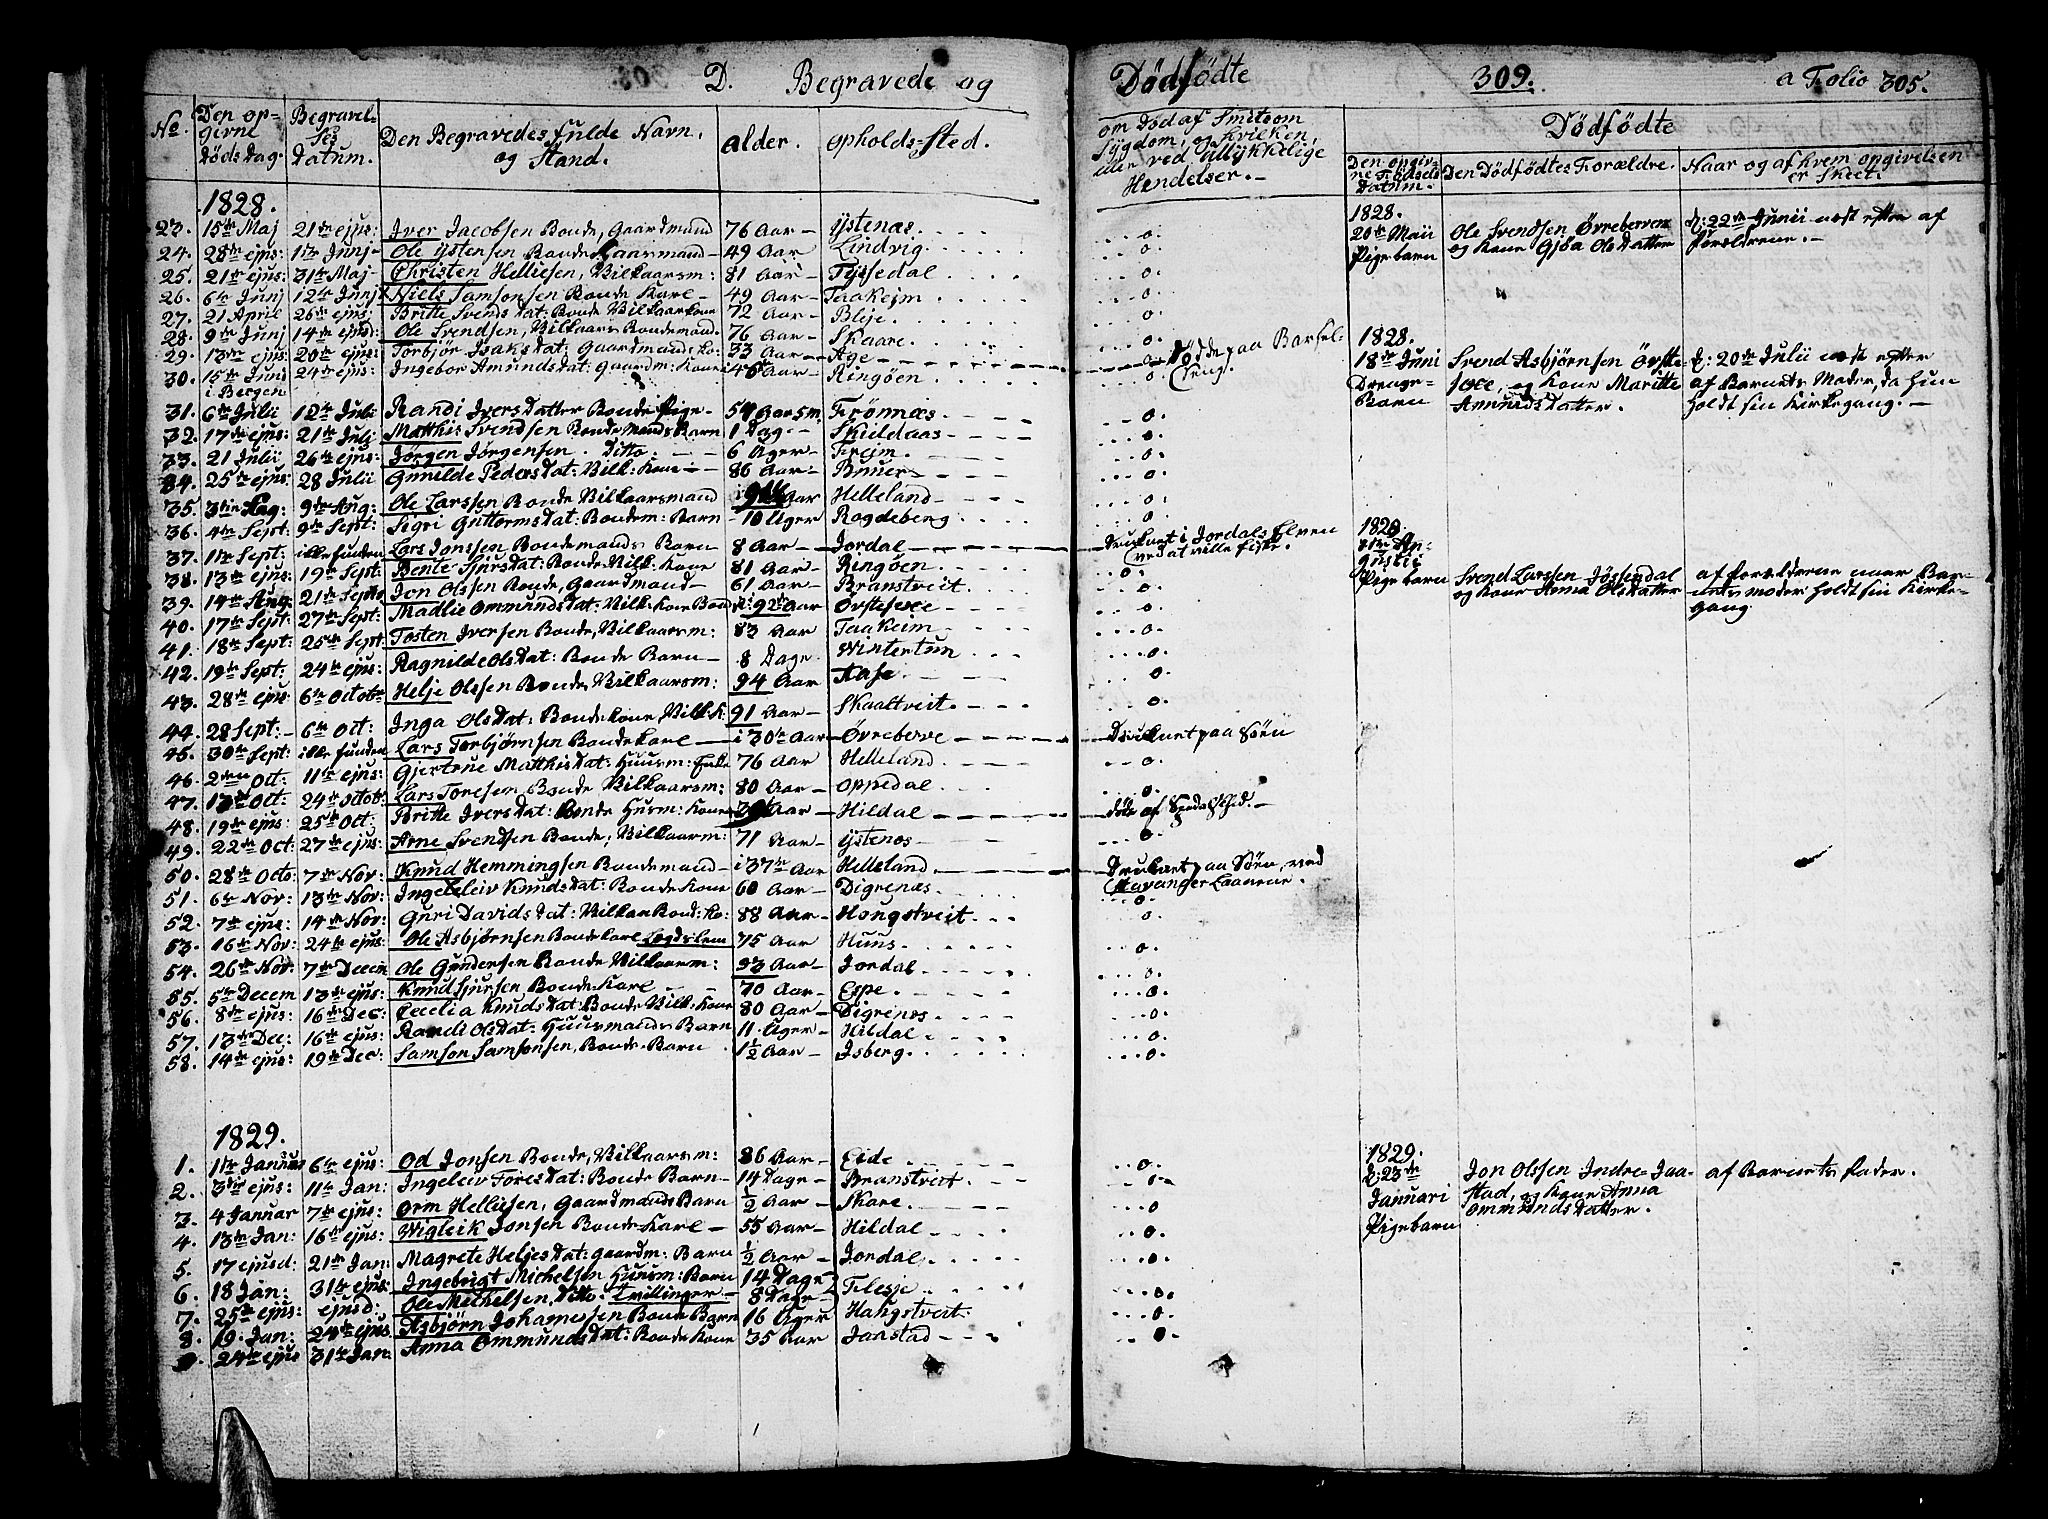 D. Begravede og
No. Den opgivne Døds Dag. Begravelses Datum. Den Begravedes fulde Navn, og Stand. alder. opholds-sted.
1828.
23. 15de Maj 21de ejus: Iver Jacobsen Bonde, Gaardmand 76 Aar Ystenæs
24. 28de ejus: 1ste Junj Ole Ystensen Bonde Gaarmand 49 Aar Lindvig
25. 21de ejus: 31te Maj Christen Helliesen, Vilkaarsm: 81 Aar Tyssedal
26. 6te Junj 12te Junj Niels Samsonsen Bonde Karl 49 Aar Taakejm
27. 21 April 26de ejus: Britte Svends Dat: Bonde Vilkaarkone 72 Aar Bleje
28. 9de Junj 14de ejusd: Ole Svendsen, Vilkaars Bondemand. 76 Aar Skaare
29. 13de ejus: 20de ejus: Torbjør Isaks Dat: Gaardmands Ko: 33 Aar Age
30. 15de Juni i Bergen 24de ejus: Ingebor Amunds Dat: Gaardm: Kone i 46 Aar Ringøen
31. 6te Julii 12te Juli Randi Ivers Datter Bonde Pige 54 Aar Frønnæs
32. 17de ejus: 21de Juli Matthis Svendsen Bonde Mands Barn 1 Dag Skieldaas
33. 21 Julii 26de ejus: Jørgen Jørgensen Ditto. 6 Uger Frejm
34. 25de ejus: 28 Julii Gunilde Peders Dat: Vilk: Kone 86 Aar Bruer
35. 9de Aug: Ole Larssen Bonde Vilkaarsmand Aar Helleland
36. 4de Sept: 9de Sept: Sigri Guttorms Dat: Bondem: Barn 10 Uger Rogdeberg
37. 1ste Sept: ille funden Lars Jonssen Bondemands Barn 8 Aar Jordal
38. 13de ejus: 19de Sept: Bente Sjurs Dat: Bonde Vilk: Kone 81 Aar Ringøen
39. 14de Aug: 21de Septb: Jon Olssen Bonde, Gaardmand 61 Aar Branstveit
40. 17de Sept: 27de Sept: Madlie Ommunds Dat: Vilk: Kone 92 Aar Øvsteseee
41. 18de Sept: 25de Sept: Tosten Iversen Bonde, Vilkaarsm: 83 Aar Taakeim
42. 19de Sept: 24de ejus: Ragnilde Ols Dat: Bonde Barn 8 Dage Wintertun
43. 28de ejus 6te Octobr Helje Olssen Bonde, Vilkaarsm: 94 Aar Aase
44. 28 Sept: 6te Oct: Inga Ols Dat: Bondekone, Vilk: K: 91 Aar Skaaltveit
45. 30te Sept: ille funden Lars Torbjørnsen Bonde Karl i 30te Aar Øvreberve
46. 2den Oct: 11te ejus: Gjertrue Matthis Dat: Huusm: Enke 76 Aar Helleland
47. 13de Oct: 24de Octob: Lars Toresen Bonde Vilkaarsm: 80 Aar Oppedal
48. 19de ejus: 25de Oct: Britte Ivers Dat: Bonde Husm: Kone Aar Hildal
49. 22de Oct: 27de ejus: Arne Svendsen Bonde, Vilkaarm: 71 Aar Ystenæs
50. 28de Octo: 7de Nov: Knud Hemmingsen Bondemand i 37te Aar Helleland
51. 6te Nov: 13de Nov: Ingeleiv Knuds Dat: Bonde Kone 60 Aar Digrenæs
52. 7de ejus: 14de Nov: Guri Davids Dat: Vilkaa Bond: Ko: 88 Aar Hougstveit
53. 16de Nov: 24de ejus: Ole Asbjørnsen Bonde Karl Legdslem 75 Aar Huus
54. 26de Nov: 7de Decem Ole Gundersen Bonde Vilkaarm: 93 Aar Jordal
55. 5te Decem 13de ejus: Knud Sjursen Bonde Karl 70 Aar Espe
56. 8de ejus: 16de Dec: Cecelia Knuds Dat: Bonde Vilk: Kone 80 Aar Digrenæs
57. 13de Dec: 16de ejus: Randi Ols Dat: Huusmands Barn 11 Uger Hildal
58. 14de ejus: 19de Dec: Samson Samsonsen, Bonde Barn 1½ Aar Isberg
1829.
1. 1ste Januar 6te ejus: Od Jonsen Bonde, Vilkaarsm: 86 Aar Eide
2. 3die ejus: 11te Jan: Ingeleiv Tores Dat: Bonde Barn 14 Dage Branstveit
3. 4 Januar 7de ejus: Orm Helliesen, Gaardmands Barn ½ Aar Skare
4. 13de Jan: 16de ejus: Wigleik Jonsen Bonde Karl 55 Aar Hildal
5. 17 ejusd: 21de Jan: Magrete Heljes Dat: gaardm: Barn ½ Aar Jordal
6. 18 Jan: 31te ejus: Ingebrigt Michelsen Huusm: Barn 14 Dage Tlesje
7. 25de ejus: ejusd: Ole Michelsen, Ditto. Tvillinger 8 Dage
8. 19. Jan: 24de ejus Asbjørn Johannessen Bonde Barn 16 Uger Haugstveit
9. 24de ejus 31te Jan: Anna Ommunds Dat: Bonde Kone 35 Aar Jaastad
Dödfødte 309. a Folio 305.
om Død af Smitsom Sygdom, og hvilken, eller ved Ulykkelige Hendelser.
Dödfødte
Den opgivne Fødsels Datum. Den Dödfødtes Forældre. Naar og af hvem opgivelsen er Skeet.
1828.
20de Maii Pigebarn Ole Svendsen Øvreberven og Kone Gjøa Ols Datter D: 22de Junii næst efter af forældrene.
Døde paa Barsel-Seng.
1828.
18de Juni Drenge-Barn Svend Asbjørnsen Øvste-seee, og Kone Maritte Amunds Datter. D: 20de Julii næst efter af Barnets Moder, da hun holdt sin Kirkegang.
Druknet i Jordals Elven ved at ville fiske.
1828.
Augustii Pigebarn Svend Larssen Jøssendal og Kone Anna Ols Datter af forældrene naar Barnets moder holdt sin Kirke-gang
Druknet paa Søen
døde af
Druknet paa Søen, ved Stavanger
1829.
D: 23de Januari Pigebarn Jon Olssen Indre Jaastad, og Kone Anna Ommunds Datter. af Barnets fader.